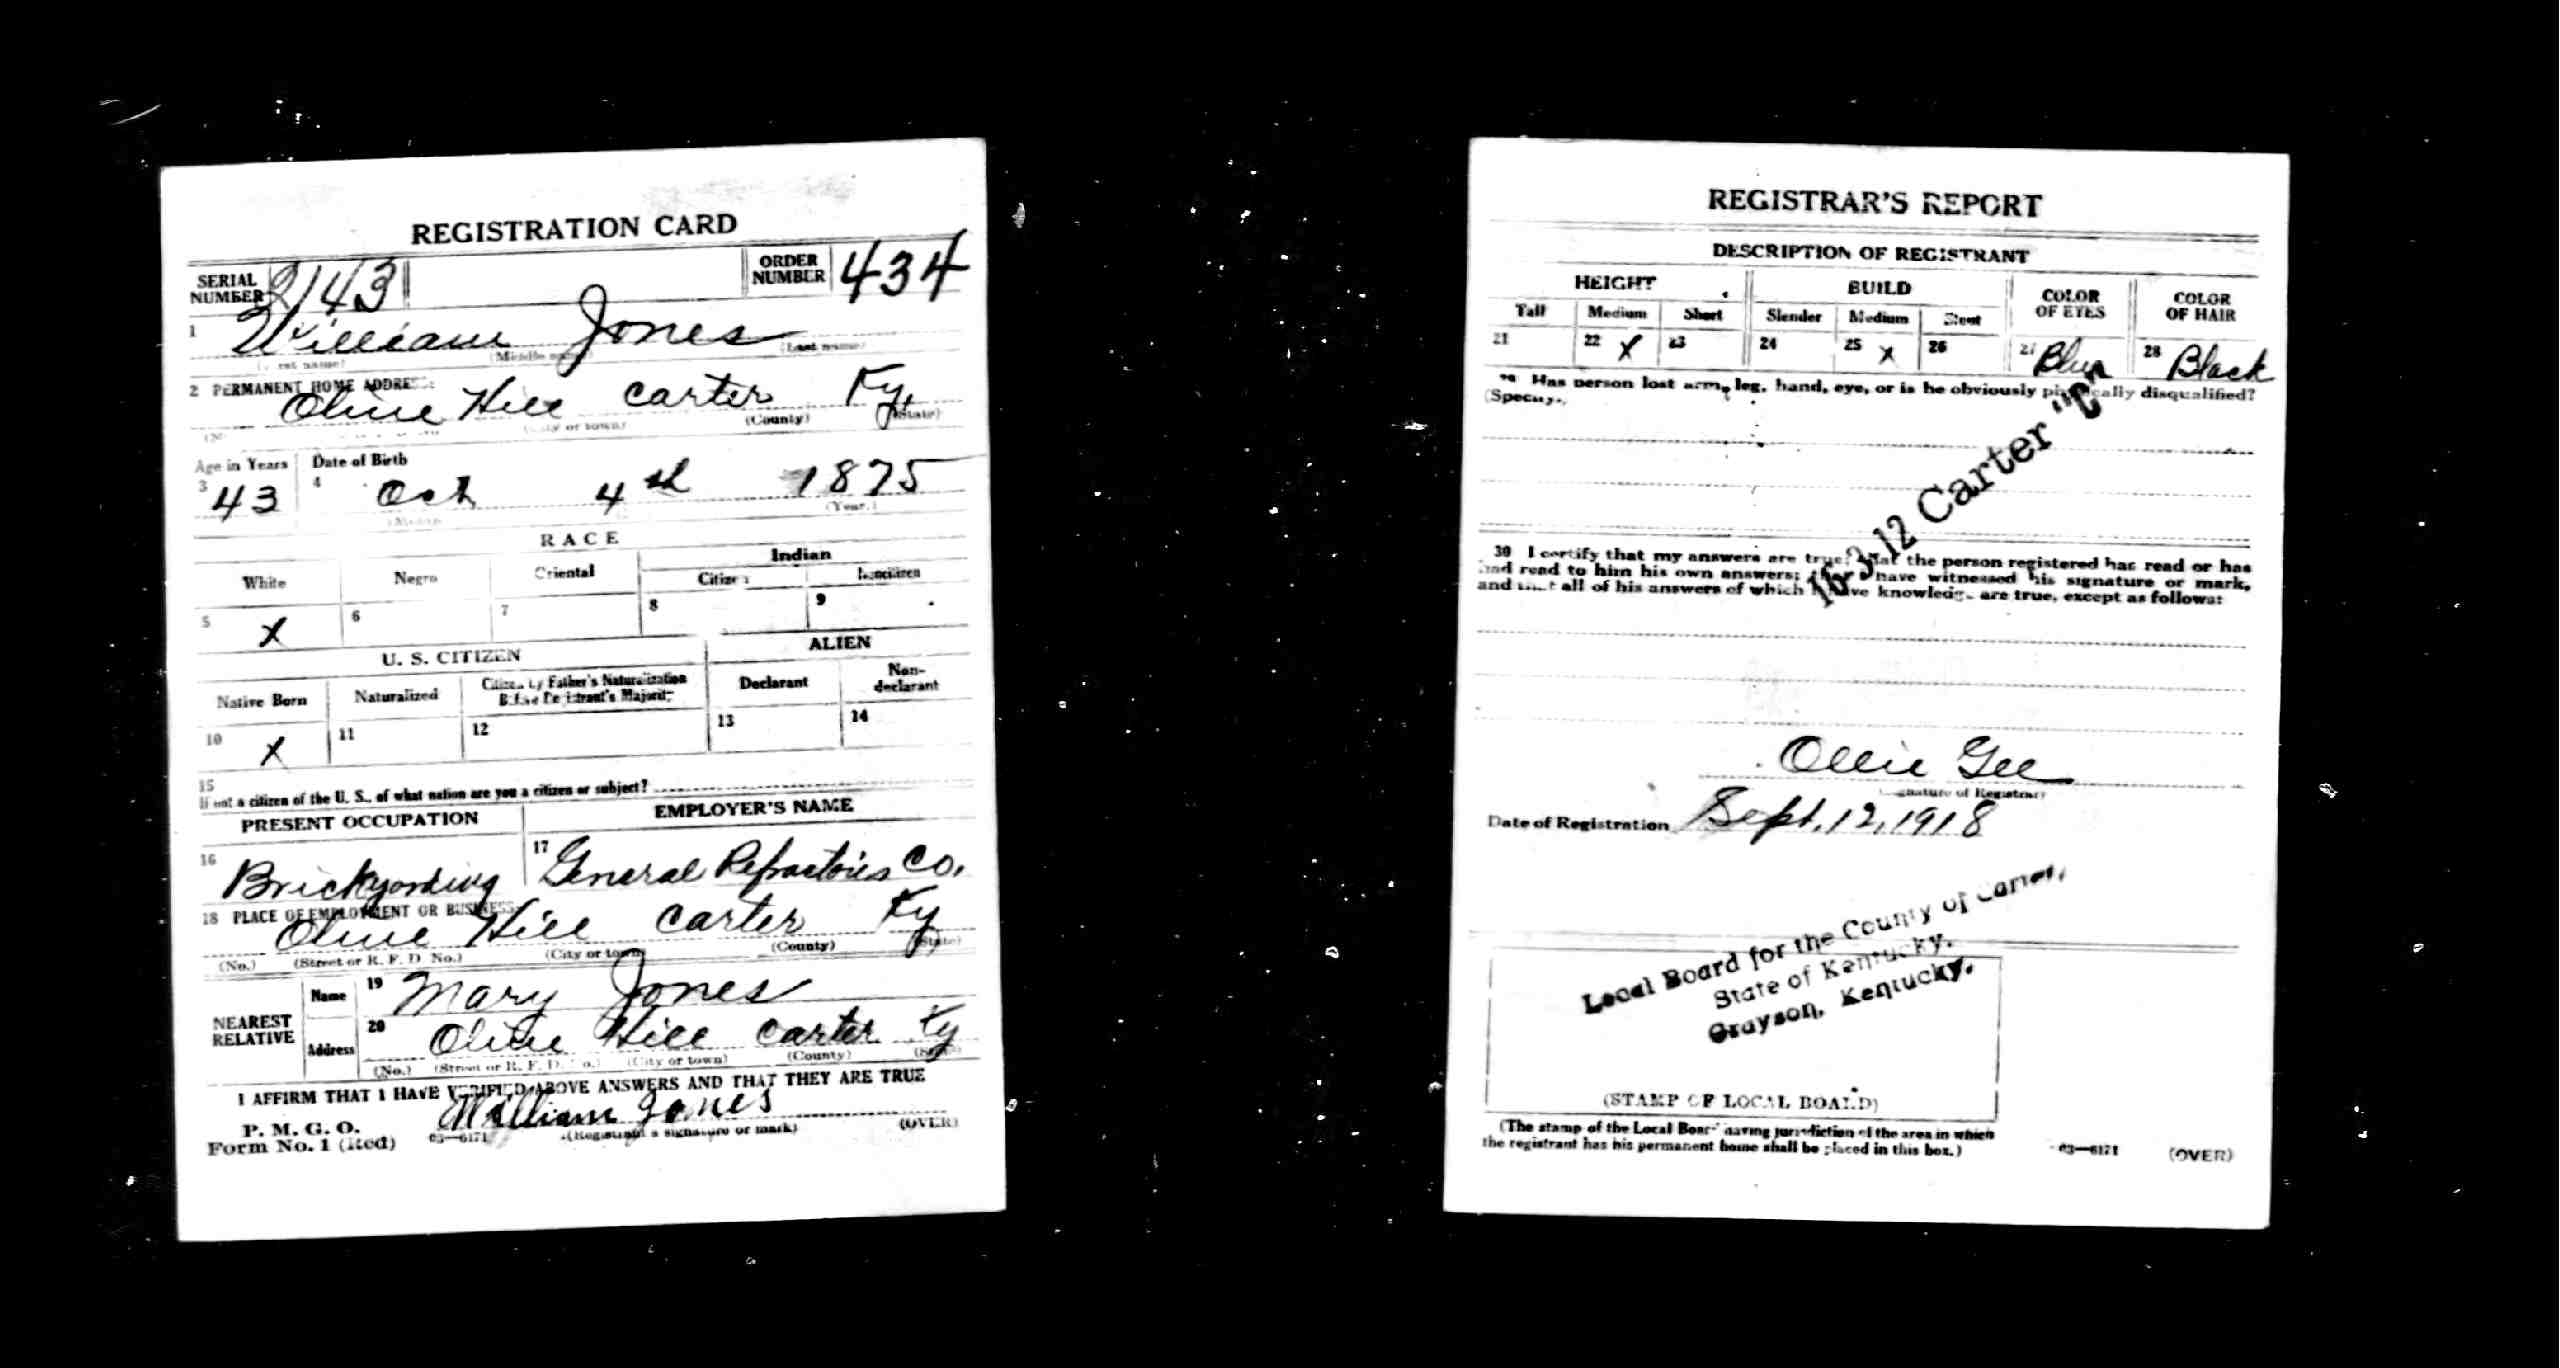 REGISTRATION CARD
SERIAL NUMBER 2143 ORDER NUMBER 434
1 William Jones
(Middle name) (Last name)
2 PERMANENT HOME ADDRESS:
Olive Hill Carter Ky.
(City or town) (County) (State)
Age in Years Date of Birth
3 43 4 Oct 4th 1875
(Month) (Year.)
RACE
White Negro Oriental Indian
Citizen Noncitizen
5 X 6 7 8 9
U. S. CITIZEN ALIEN
Native Born Naturalized Citizen by Father's Naturalization Before Registrant's Majority Declarant Non-declarant
10 X 11 12 13 14
15
If not a citizen of the U. S., of what nation are you a citizen or subject?
PRESENT OCCUPATION EMPLOYER'S NAME
16 Brickyarding 17 General Refractories Co.
18 PLACE OF EMPLOYMENT OR BUSINESS:
Olive Hill Carter Ky
(No.) (Street or R. F. D. No.) (City or town) (County) (State)
NEAREST RELATIVE
Name 19 Mary Jones
Address 20 Olive Hill Carter Ky
(No.) (Street or R. F. D. No.) (City or town) (County) (State)
I AFFIRM THAT I HAVE VERIFIED ABOVE ANSWERS AND THAT THEY ARE TRUE
William Jones
P. M. G. O.
Form No. 1 (Red) 03—6171 (Registrant's signature or mark) (OVER)
REGISTRAR'S REPORT
DESCRIPTION OF REGISTRANT
HEIGHT BUILD COLOR OF EYES COLOR OF HAIR
Tall Medium Short Slender Medium Stout
21 22 X 23 24 25 X 26 27 Blue 28 Black
29 Has person lost arm, leg, hand, eye, or is he obviously physically disqualified?
(Specify.)
16-3-12 Carter "C"
30 I certify that my answers are true; that the person registered has read or has
had read to him his own answers; that I have witnessed his signature or mark,
and that all of his answers of which I have knowledge are true, except as follows:
Ollie Gee
(Signature of Registrar)
Date of Registration Sept. 12, 1918
Local Board for the County of Carter,
State of Kentucky.
Grayson, Kentucky.
(STAMP OF LOCAL BOARD)
(The stamp of the Local Board having jurisdiction of the area in which
the registrant has his permanent home shall be placed in this box.)
03—6171 (OVER)